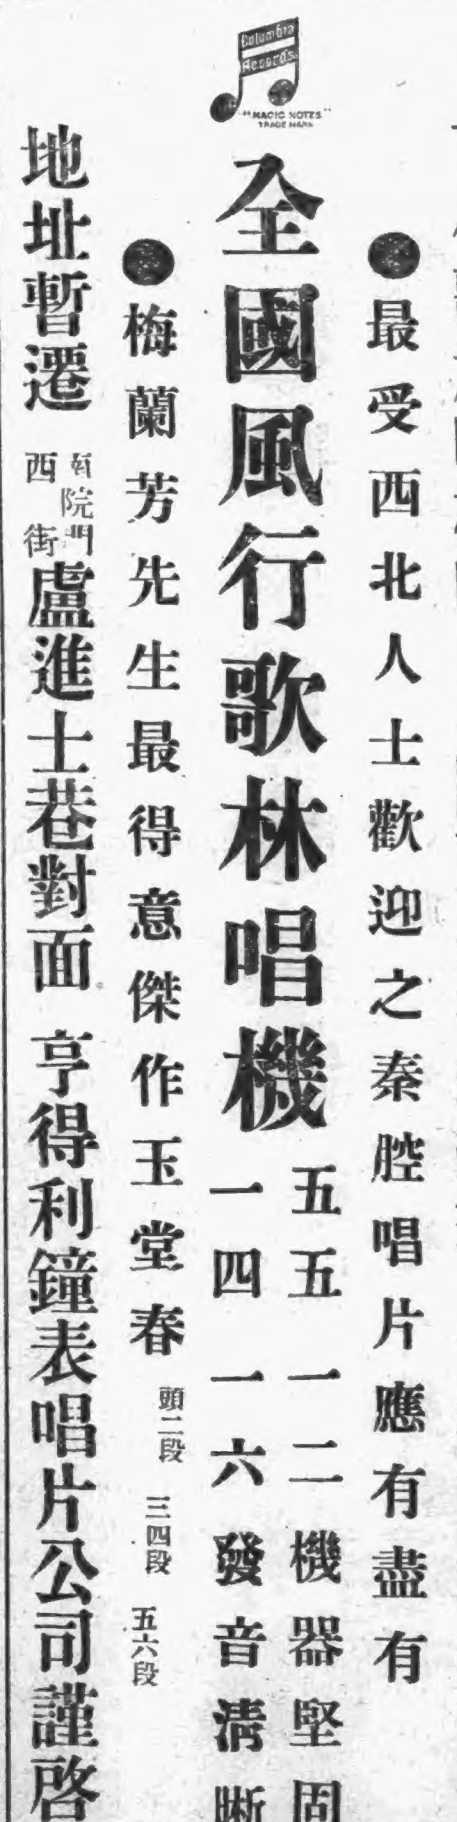 Columbia
Records
"MAGIC NOTES"
TRADE MARK
●最受西北人士歡迎之秦腔唱片應有盡有
全國風行歌林唱機
五五一二機器堅固
一四一六發音清晰
●梅蘭芳先生最得意傑作玉堂春 頭二段 三四段 五六段
地址暫遷 南院門西街 盧進士巷對面 亨得利鐘表唱片公司謹啓